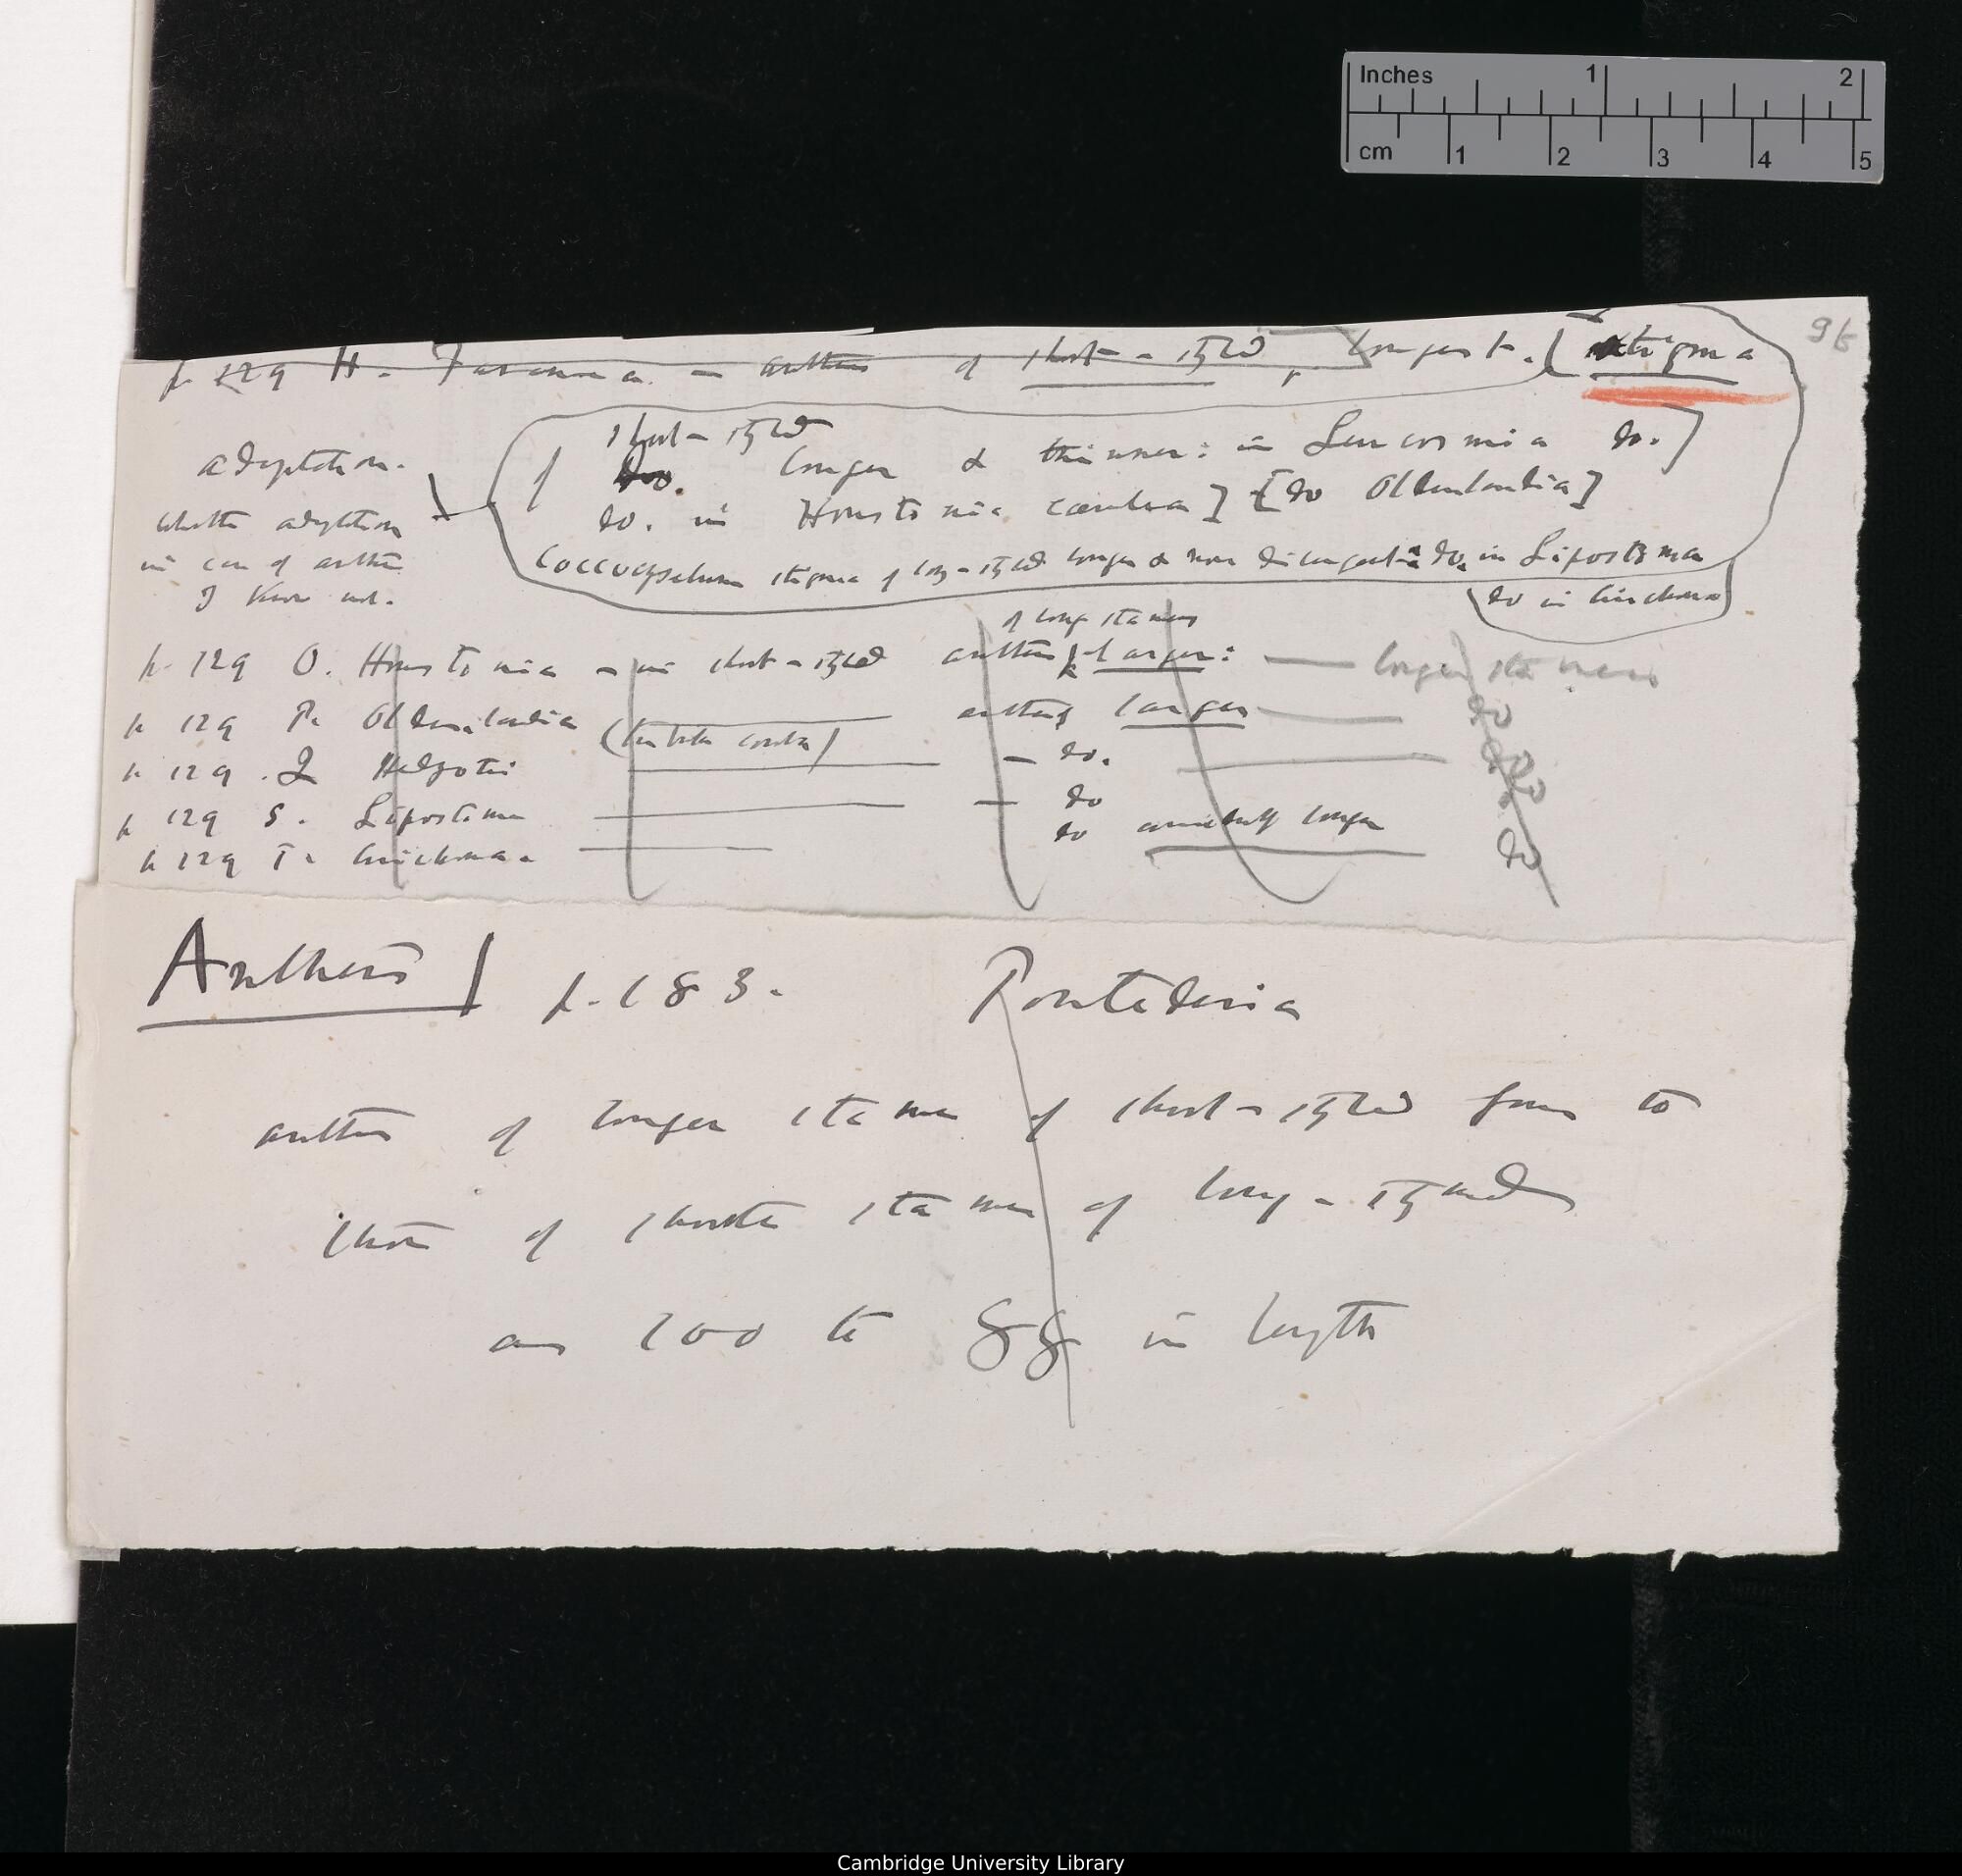 Inches 1 2
cm 1 2 3 4 5
96
p 129 H. Faramea — anthers of short-styled, longest. (stigma
of short-styled longer & thinner: in Leucosmia do.]
do.
do. in Houstonia cœrulea] [do Oldenlandia]
Coccocypselum stigma of long-styled longer & more divergent: do. in Lipostoma
do in Cinchona
adaptation.
whether adaptation
in case of anthers
I know not.
of long stamens
p. 129 O. Houstonia — in short-styled anthers larger: — longer stamens
p 129 P. Oldenlandia anthers larger — do
p 129 Q Hedyotis — do. — do
p 129 S. Lipostoma — do
p 129 T. Cinchona. — do longer do
Anthers] p. 183. Pontederia
anthers of longer stamens of short-styled form to
those of shorter stamens of long-styled
as 100 to 88 in length
Cambridge University Library